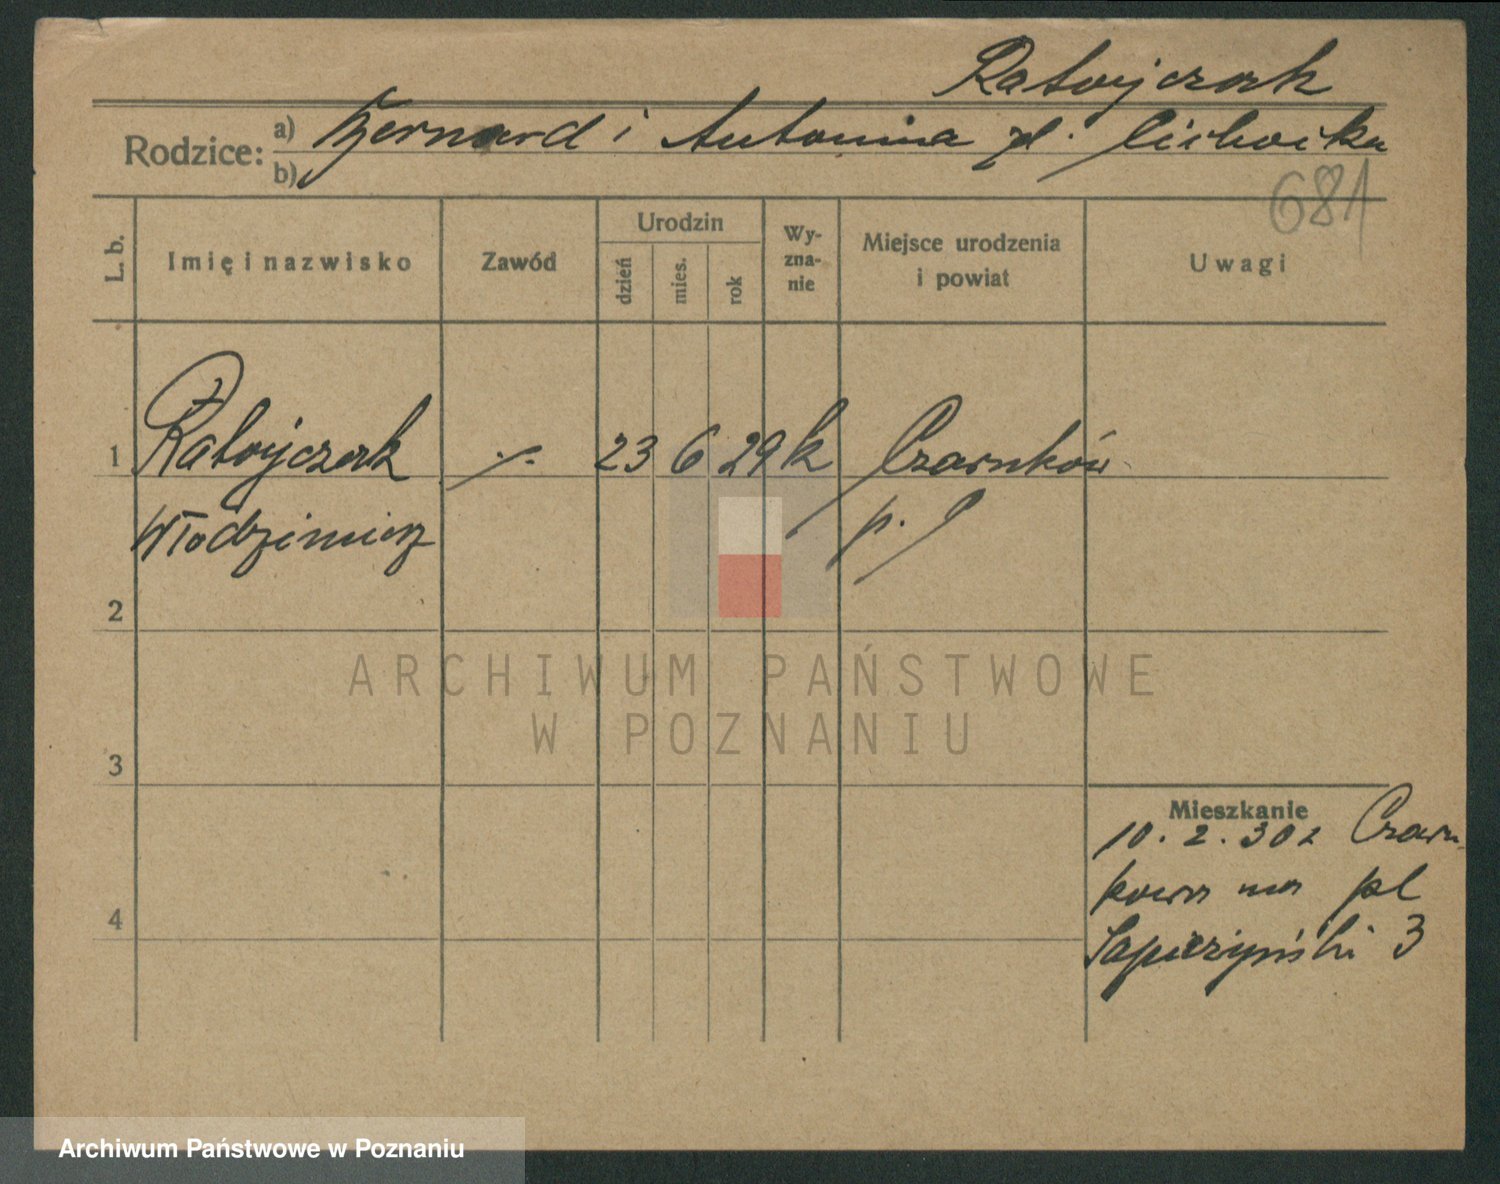 Ratajczak
Rodzice: a) Bernard i Antonina zd. Cichocka
b)
681
L. b. Imię i nazwisko Zawód Urodzin dzień mies. rok Wyzna-nie Miejsce urodzenia i powiat Uwagi
1 Ratajczak ./. 23 6 29 k Czarnków
Włodzimierz p. J
2
ARCHIWUM PAŃSTWOWE
W POZNANIU
3
Mieszkanie
10. 2. 30 z Czarn-
kowa na pl
4
Sapieżyński 3
Archiwum Państwowe w Poznaniu